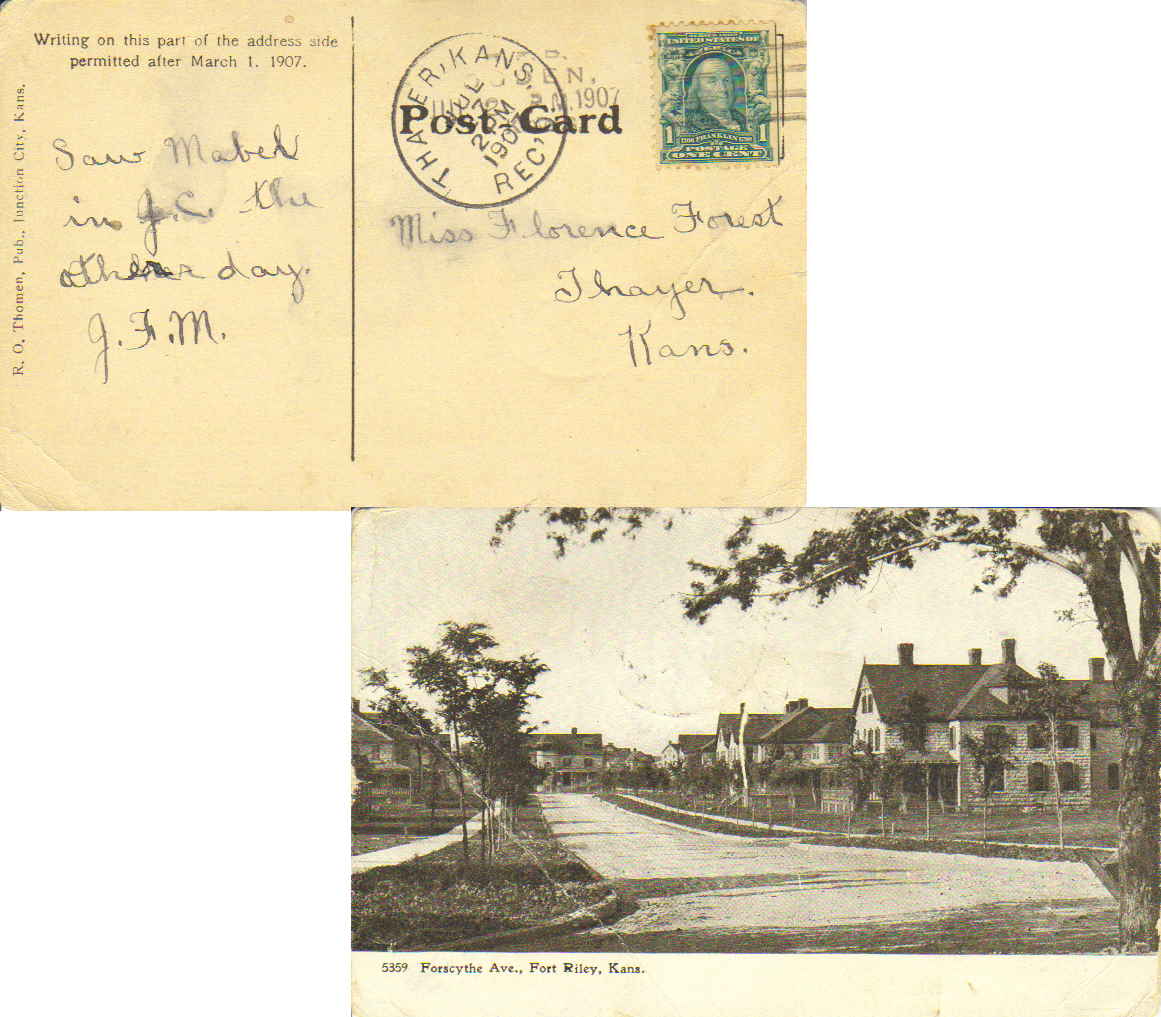 Writing on this part of the address side
permitted after March 1. 1907.
R. O. Thomen, Pub., Junction City, Kans.
Saw Mabel
in J.C. the
other day.
J.F.M.
THAYER, KANS.
JUL
27
2 PM
1907
REC'D
EN,
M. 1907
Post Card
UNITED STATES OF
FRANKLIN
1 POSTAGE 1
ONE CENT
Miss Florence Forest
Thayer.
Kans.
5359 Forscythe Ave., Fort Riley, Kans.